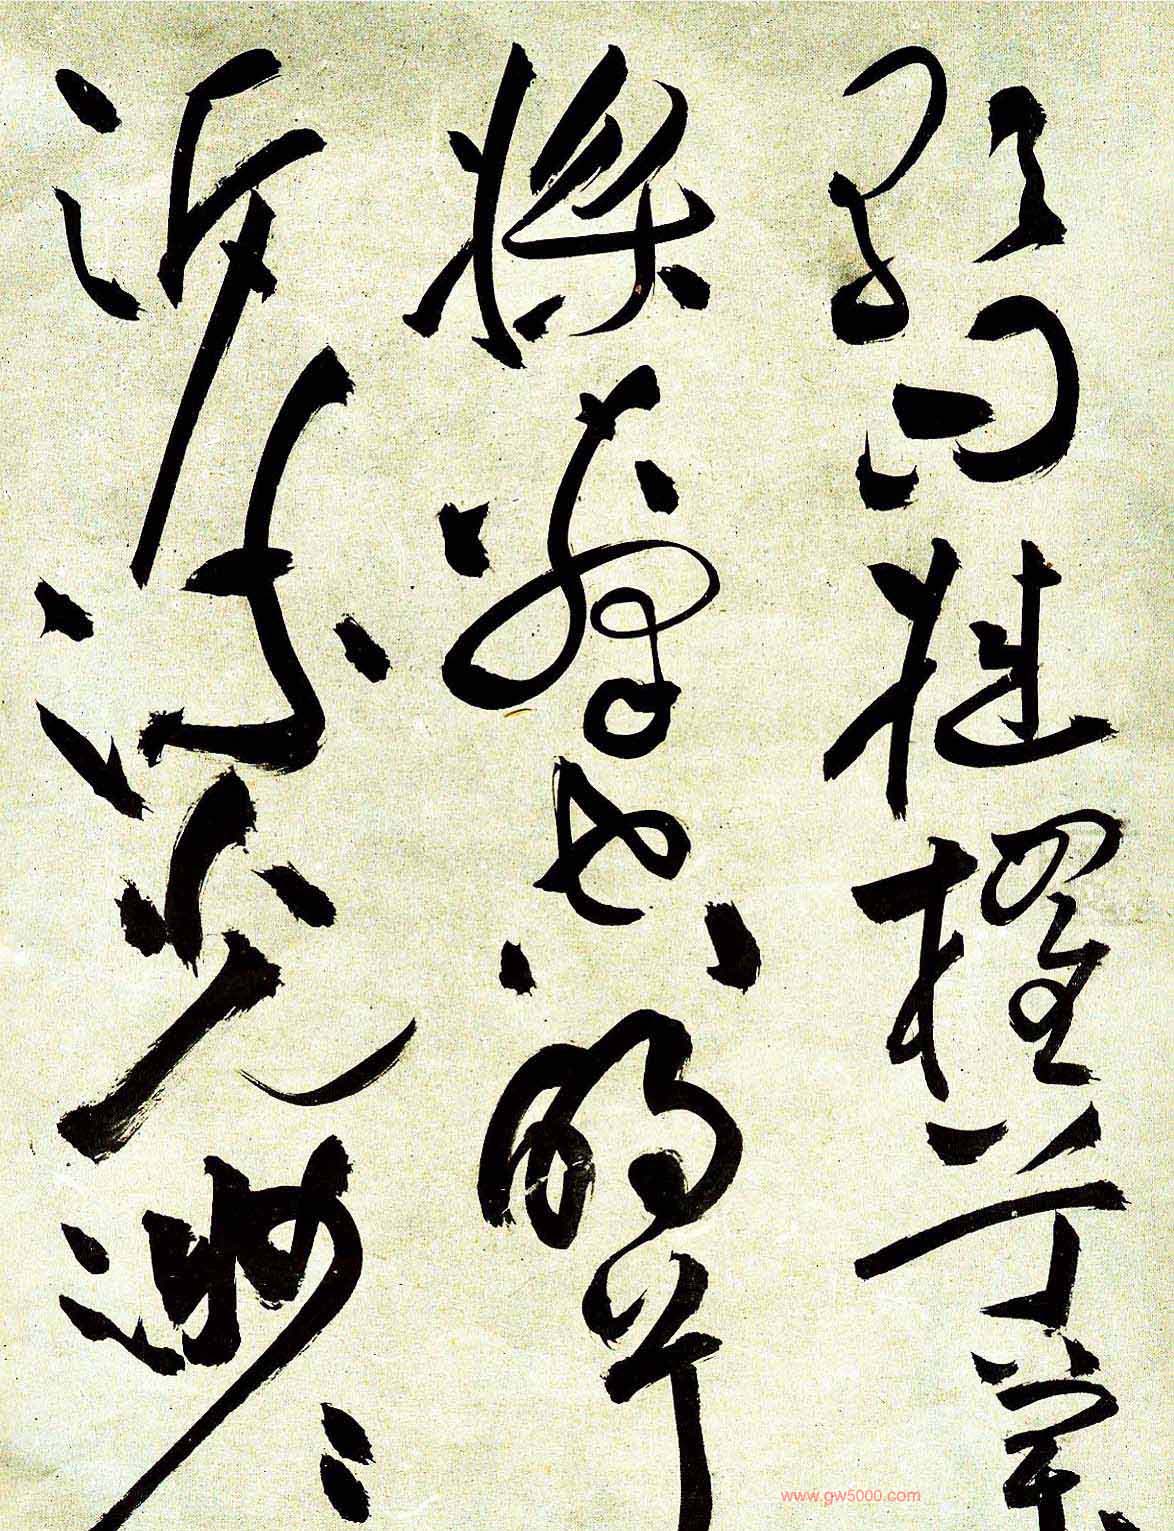 歌曰桂櫂兮蘭
槳擊空明兮
泝流光渺〻
www.gw5000.com